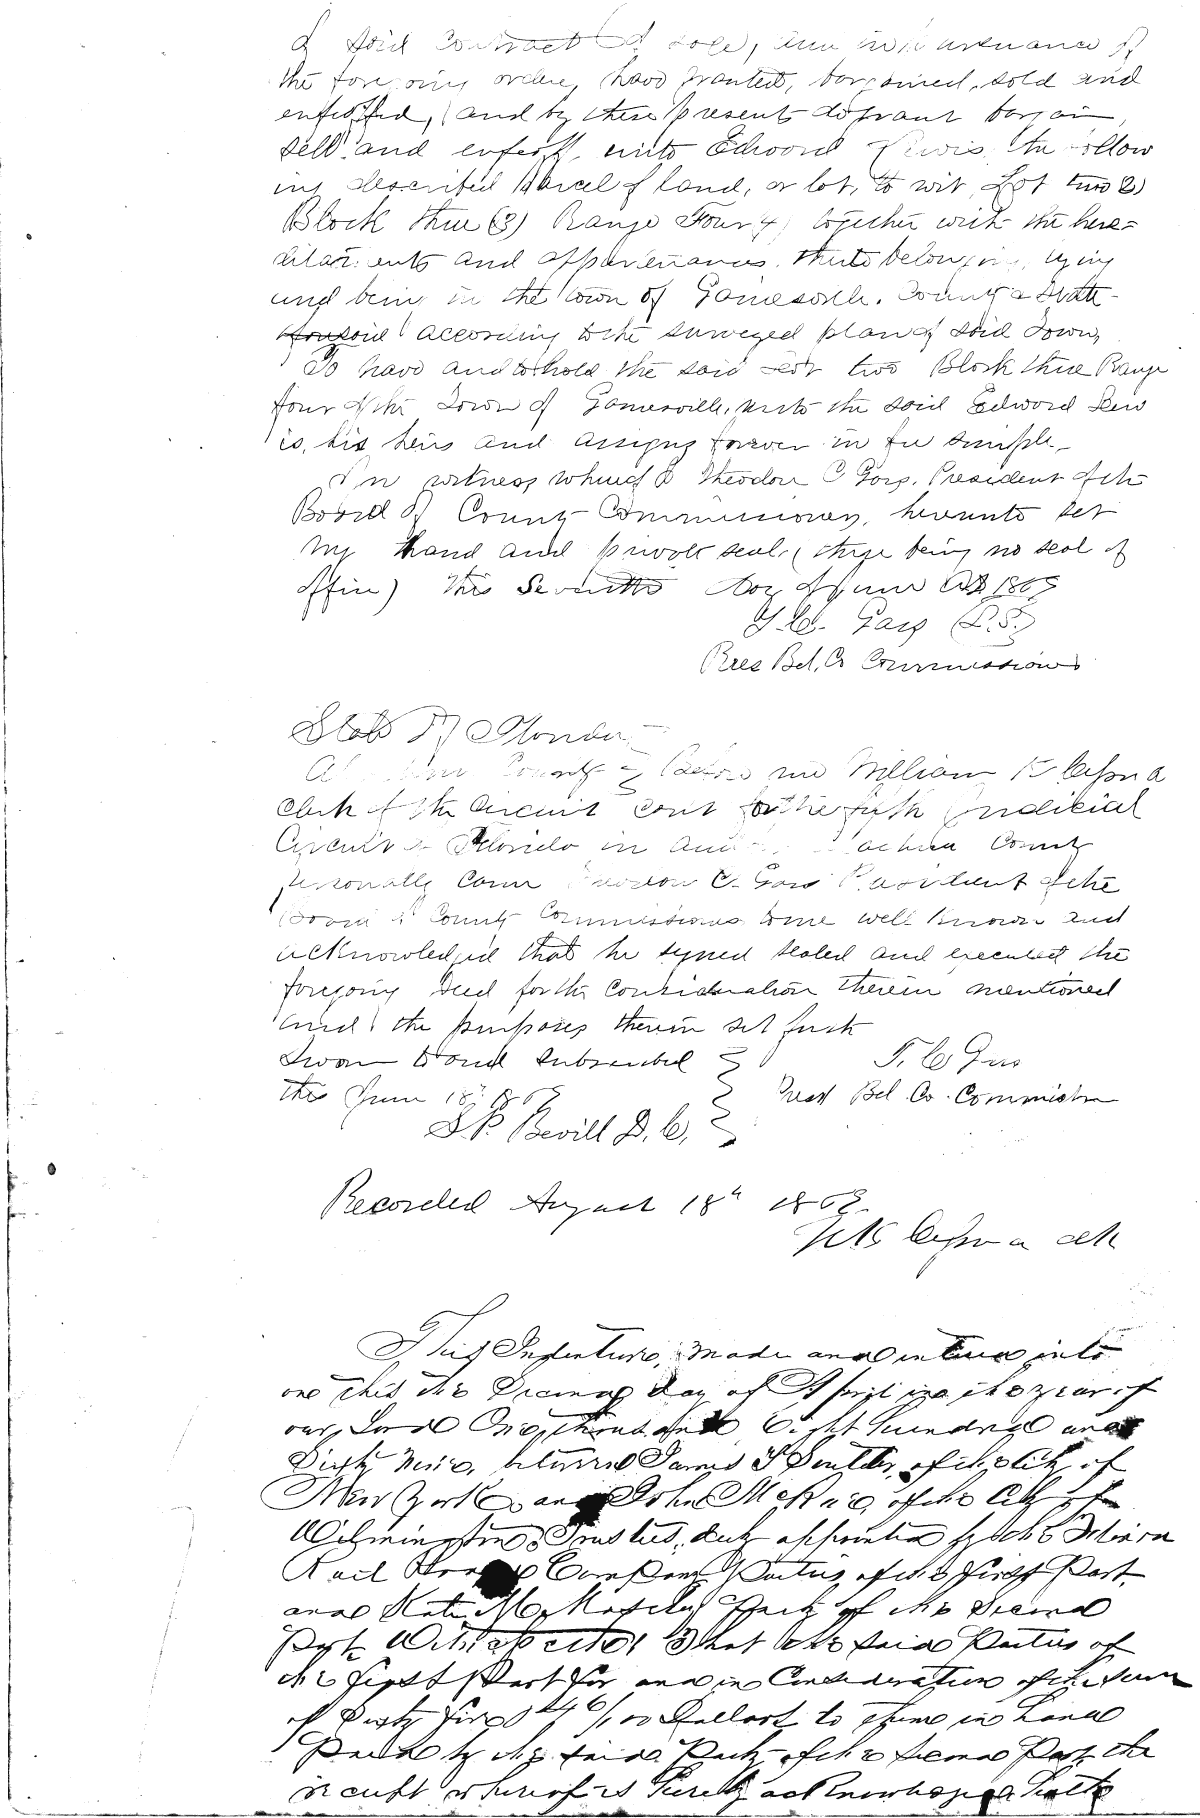 of said contract of sale, and in pursuance of
the foregoing order, have granted, bargained, sold and
enfeoffed, and by these presents do grant bargain,
sell and enfeoff, unto Edward Lewis, the follow
ing described parcel of land, or lot, to wit, Lot two (2)
Block three (3) Range Four 4) together with the here=
ditaments and appurtenances thereto belonging, lying
and being in the town of Gainesville, County & State
aforesaid according to the surveyed plan of said Town,
To have and to hold the said Lot two Block three Range
four of the Town of Gainesville, unto the said Edward Lew
is, his heirs and assigns forever in fee simple.
In witness whereof I Theodore C Gass, President of the
Board of County Commissioners, hereunto set
my hand and private seal, (there being no seal of
office) this Seventh day of June AD 1869
T. C. Gass (L.S.)
Pres Bd. Co Commissioners
State of Florida
County Before me William K Cessna
clerk of the Circuit court for the fifth Judicial
Circuit of Florida in and Alachua County
personally came Theodore C. Gass President of the
Board of County Commissioners to me well known and
acknowledged that he signed sealed and executed the
foregoing deed for the consideration therein mentioned
and the purposes therein set forth
Sworn to and subscribed T. C Gass
this June 18th 1869 Prest Bd. Co. Commission
S. P. Bevill D. C,
Recorded August 18th 1869.
W K Cessna clk
This Indenture, made and entered into
one this the Second day of April in the year of
our Lord One thousand Eight hundred and
Sixty Nine, between James T Soutter, of the City of
New York and John McRae, of the City of
Wilmington, Trustees, duly appointed by the Florida
Rail Road Company Parties of the First Part,
and Kate M. Party of the Second
Part, Witnesseth, That the said Parties of
the First Part for and in Consideration of the sum
of Sixty Five 46/100 Dollars to them in hand
Paid by the said Party of the Second Part, the
receipt whereof is hereby acknowledged hath